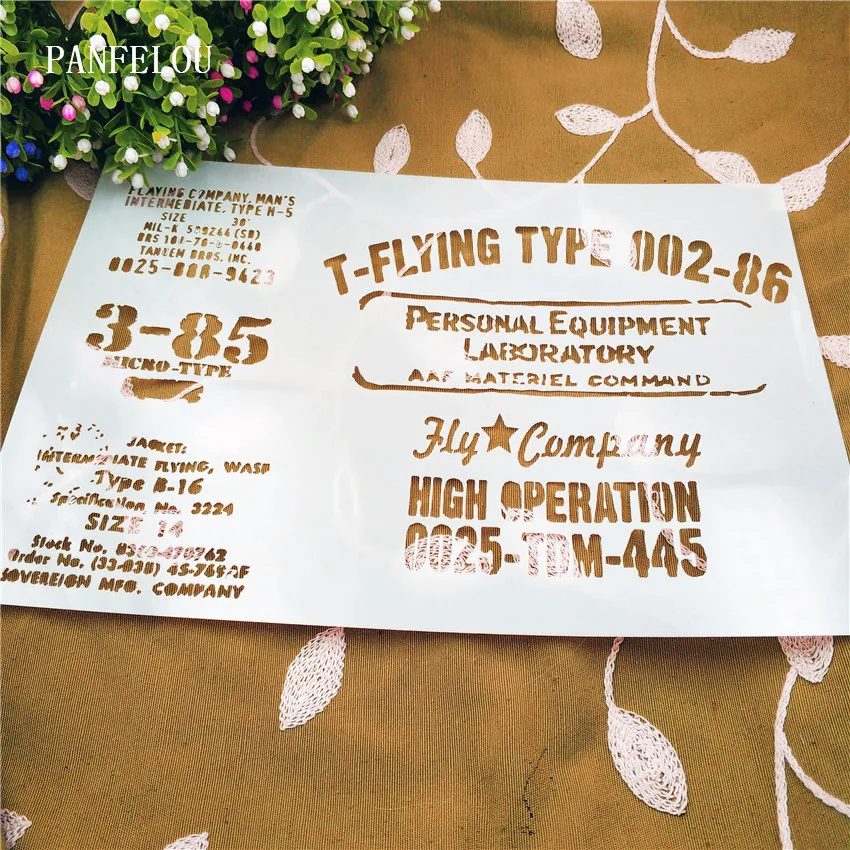 PANFELOU
FLAYING COMPANY, MAN'S
INTERMEDIATE, TYPE H-5
SIZE 30'
TANDEM BROS, INC.
3-85
MICRO-TYPE
JACKET:
INTERMEDIATE FLYING, WASP
Type B-16
Specification No. 3224
SIZE 14
Stock No.
Order No. (33-038) 45-768AF
SOVEREIGN MFG. COMPANY
T-FLYING TYPE 002-86
PERSONAL EQUIPMENT
LABORATORY
AAF MATERIEL COMMAND
Fly★Company
HIGH OPERATION
0025-TDM-445